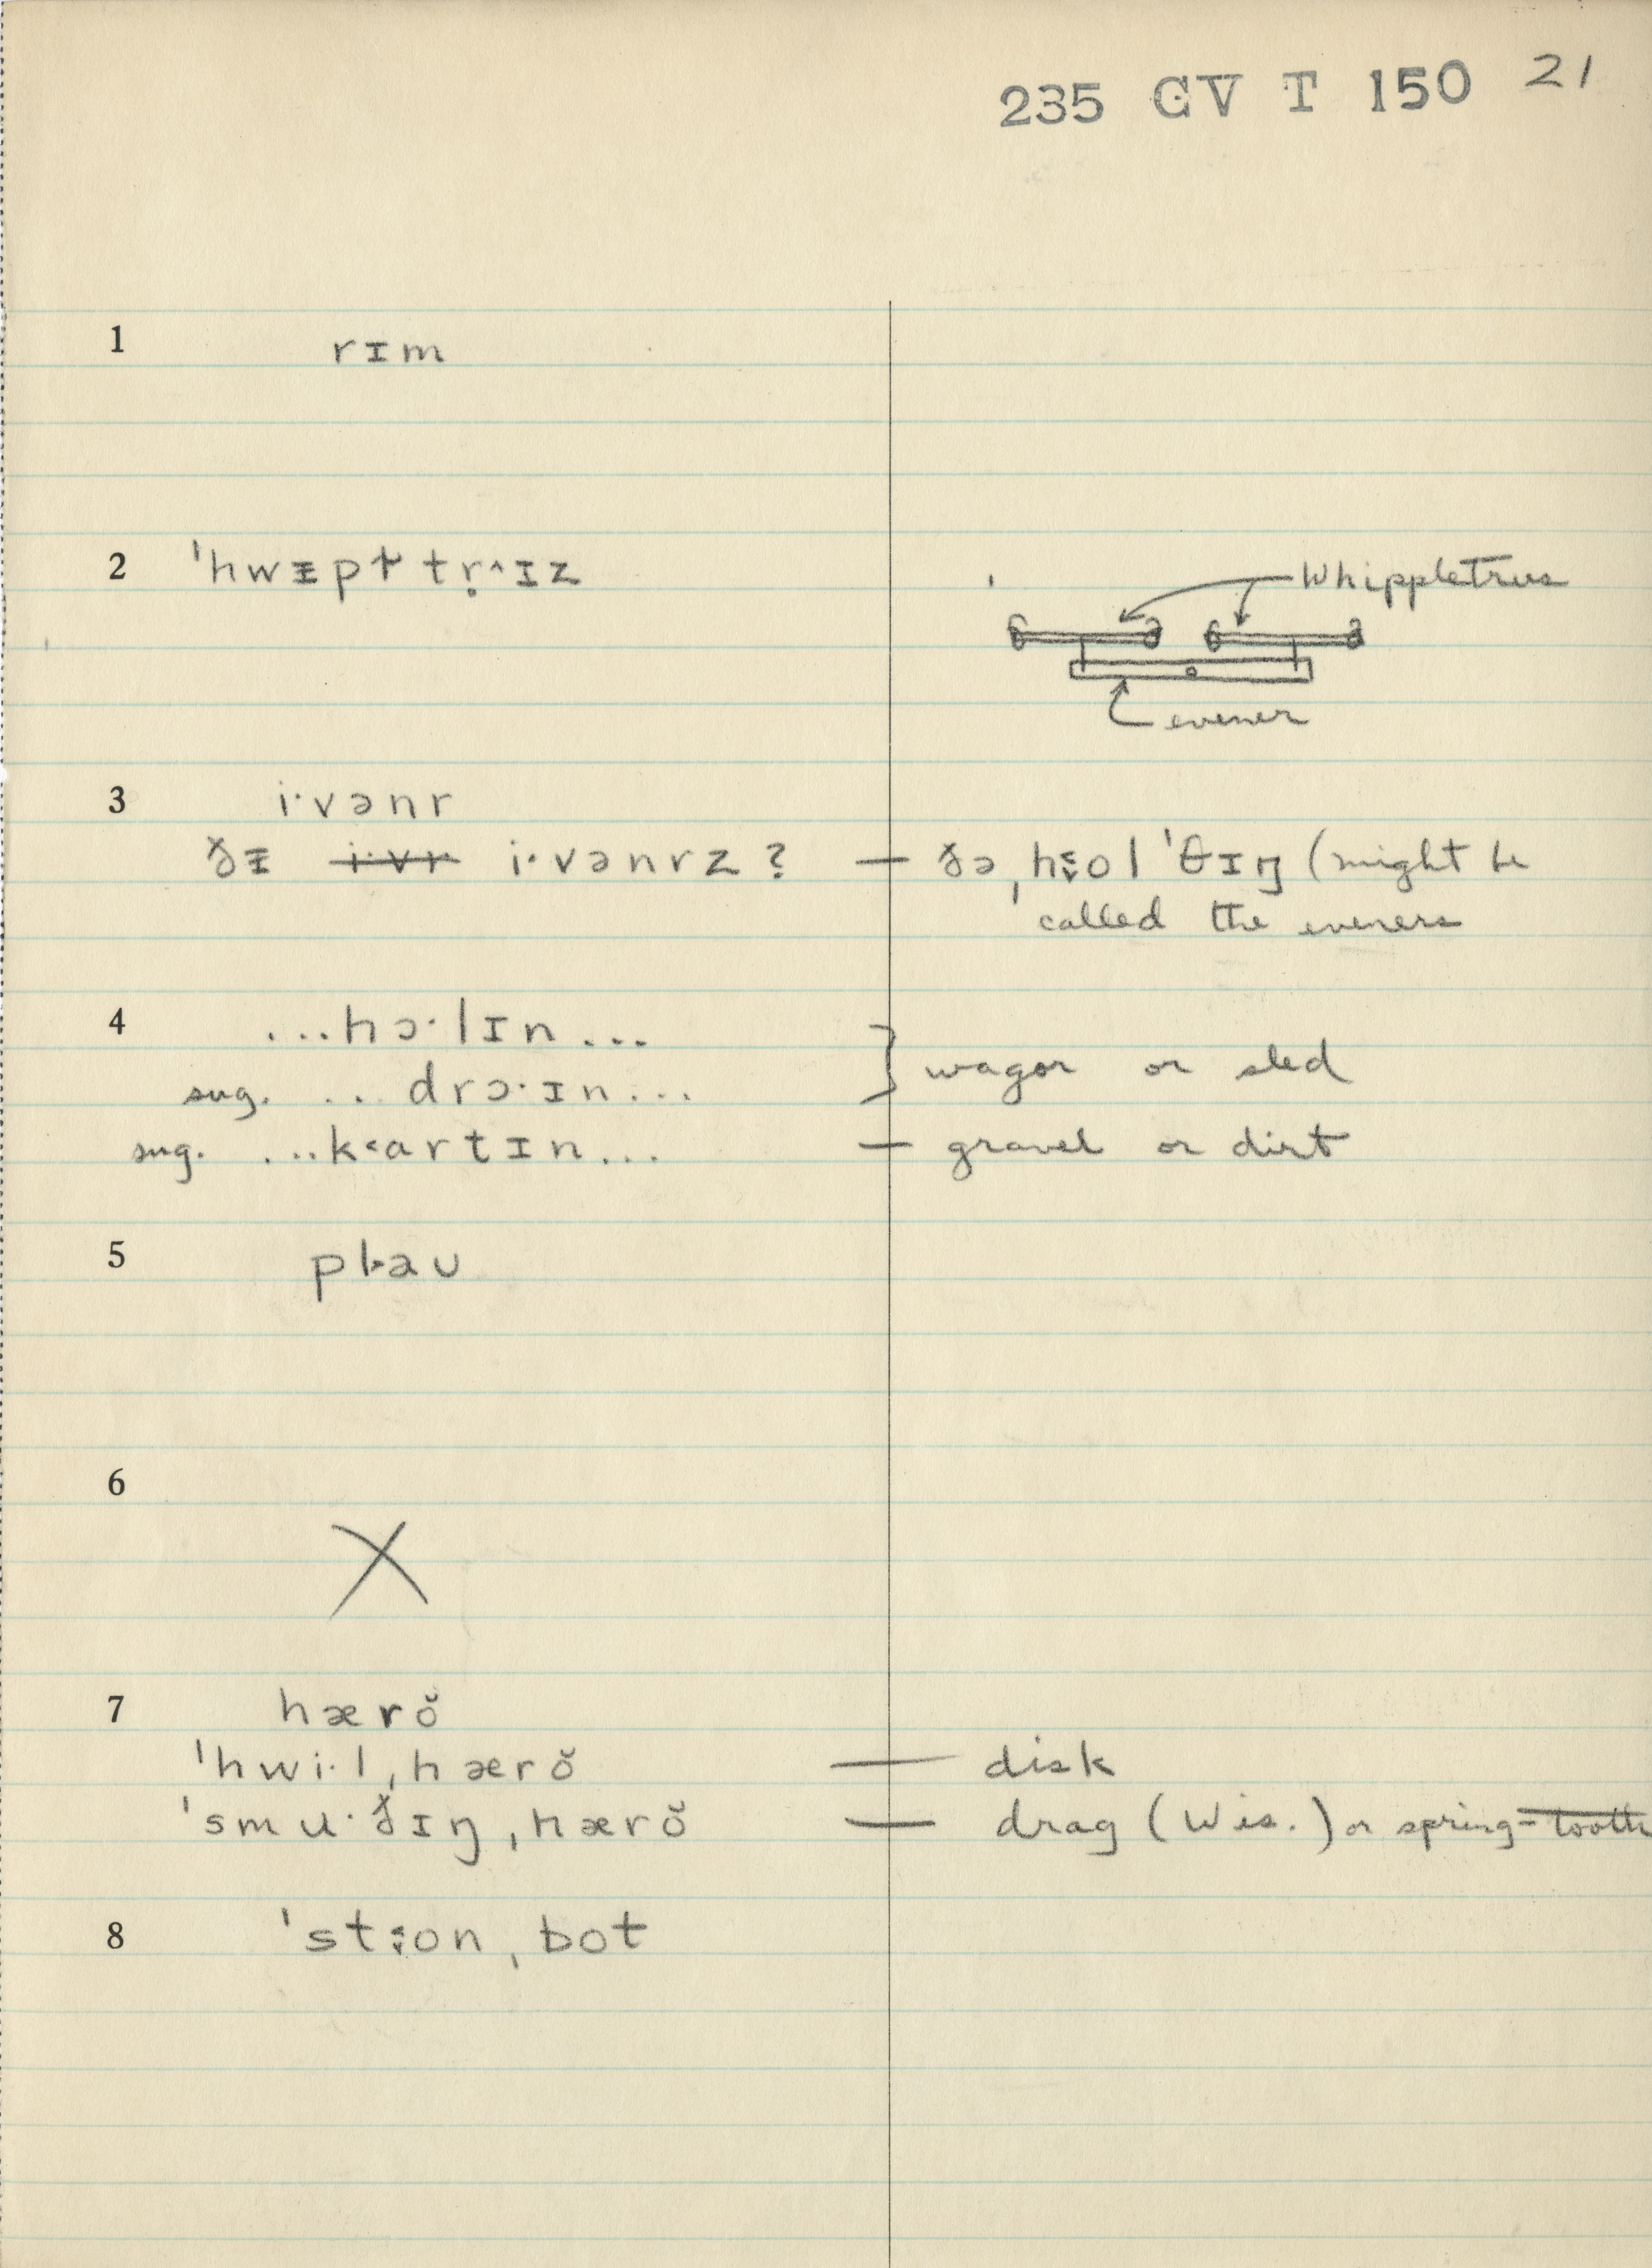 235 GV T 150 21
1 rɪm
2 ˈhwᵻpɫ tṛ^ɪz
Whippletrees
evener
3 i·vənr
ðᵻ i·vr i·vənrz ? — ðə ˌhɵol ˈθɪŋ (might be
called the eveners
4 ...hɔ·lɪn... } wagon or sled
sug. ... drɔ·ɪn...
sug. ...k‹artɪn... — gravel or dirt
5 plau
6 X
7 hærŏ
ˈhwi·l ˌhærŏ — disk
ˈsmu·ðɪŋ ˌhærŏ — drag (Wis.) or spring-tooth
8 ˈston ˌbot